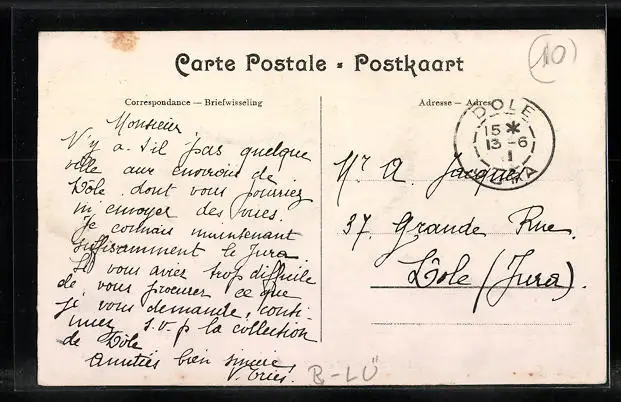 Carte Postale - Postkaart
10
Correspondance — Briefwisseling
Adresse — Adres
DOLE
15 *
13 - 6
JURA
Monsieur
N'y a-t-il pas quelque
ville aux environs de
Dôle dont vous pourriez
m'envoyer des vues.
Je connais maintenant
suffisamment le Jura
Si vous aviez trop difficile
de vous procurer ce que
je vous demande, conti-
nuez s.v.p la collection
de Dôle
Amitiés bien sincères
V.
Mr A. Jacques
37. Grande Rue.
Dôle (Jura).
B-LÜ